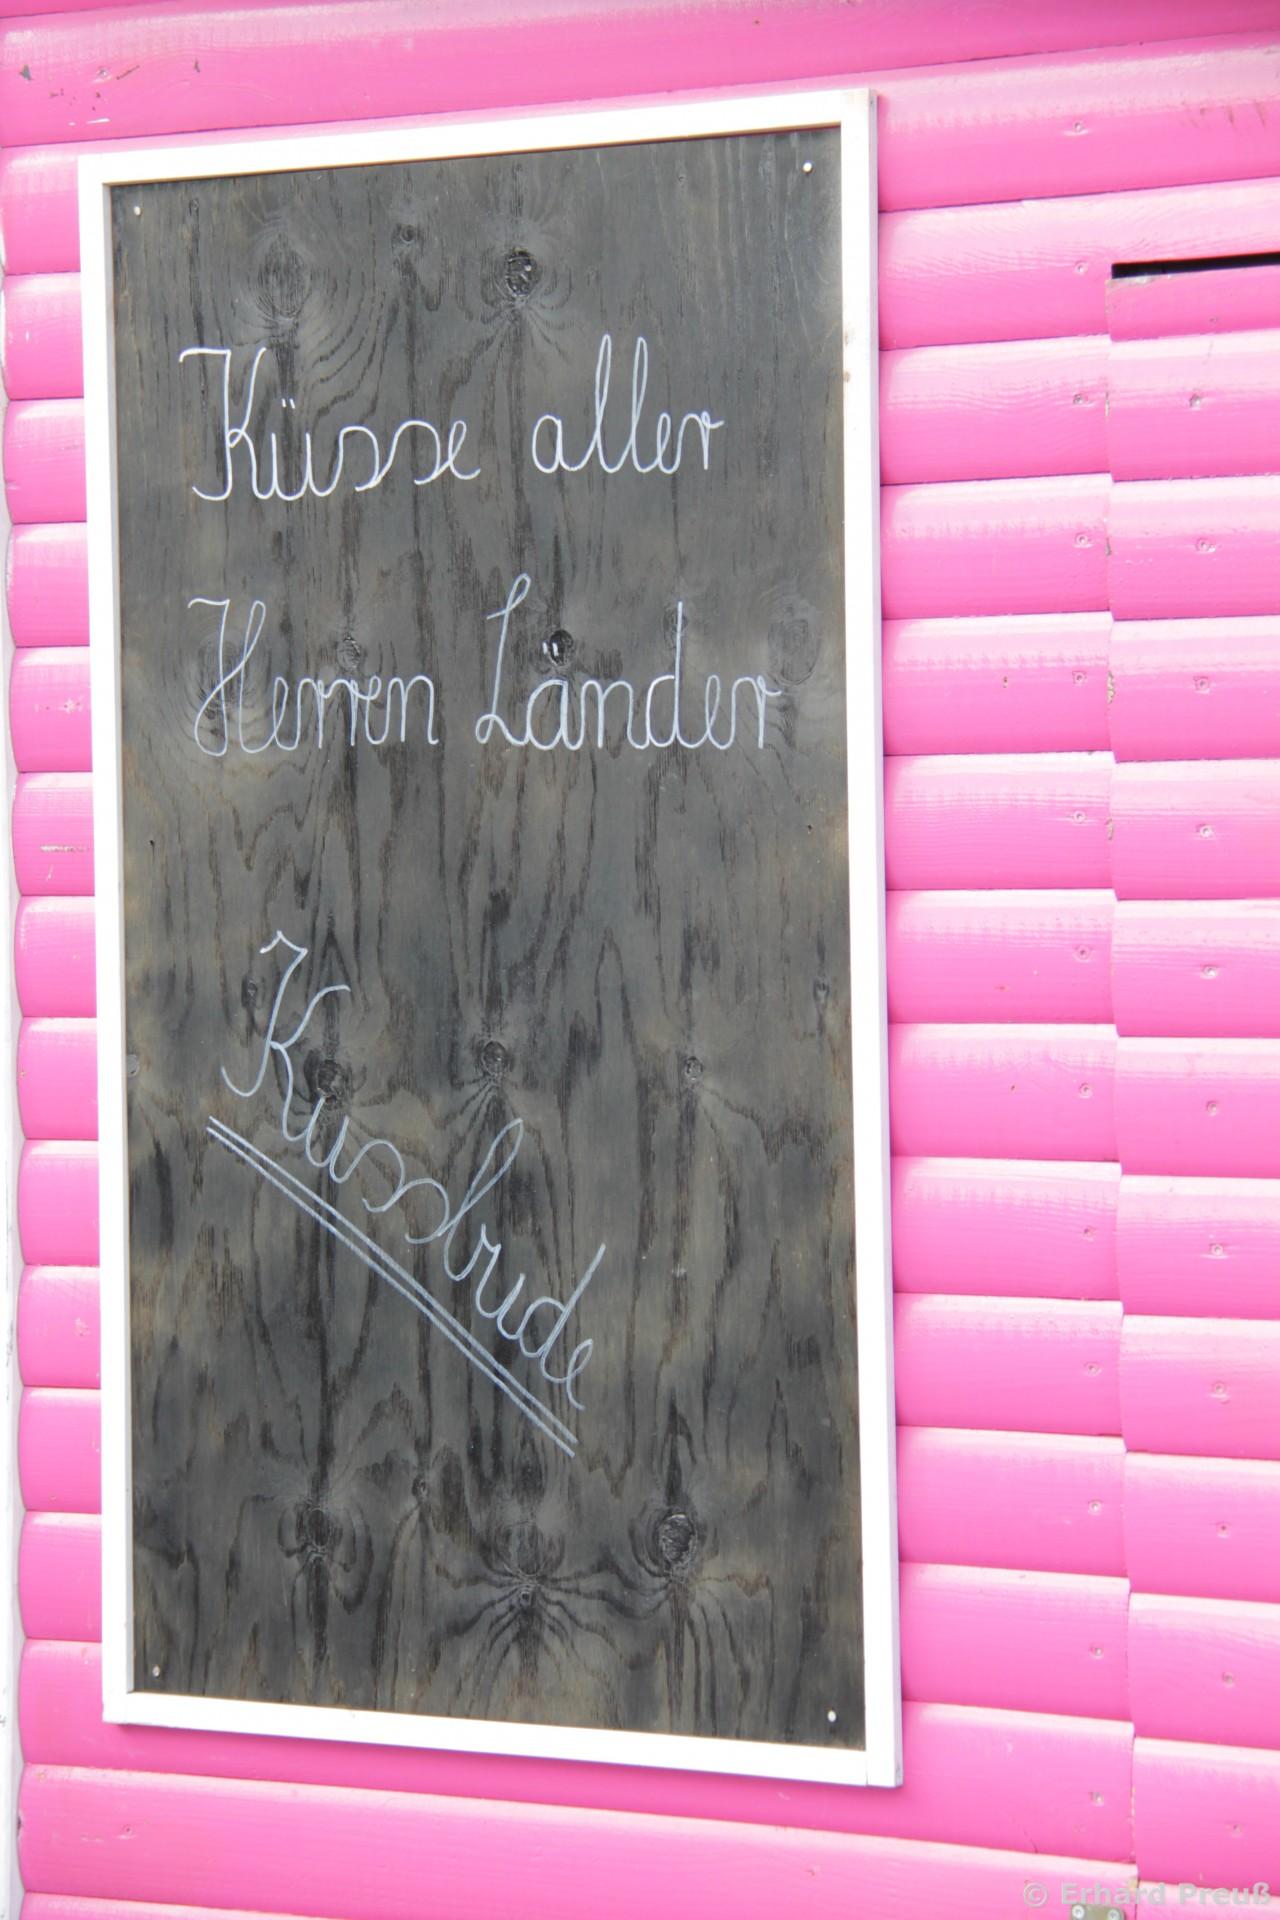 Küsse aller
Herren Länder
Kussbude
© Erhard Preuß